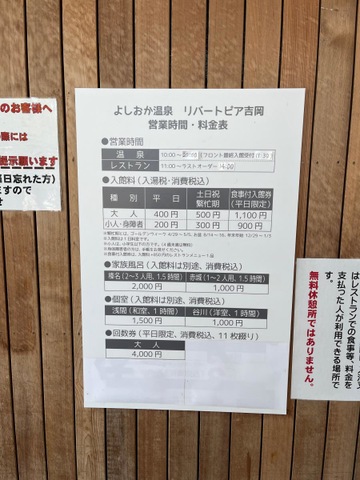 のお客様へ
には
提示願います
当日忘れた方)
ますので
せ
よしおか温泉 リバートピア吉岡
営業時間・料金表
●営業時間
温泉 10:00~ フロント最終入館受付
レストラン 11:00~ラストオーダー
●入館料(入湯税・消費税込)
種別 平日 土日祝繁忙期 食事付入館券(平日限定)
大人 400円 500円 1,100円
小人・身障者 200円 300円 900円
●家族風呂(入館料は別途、消費税込)
榛名(2~3人用、1.5時間) 赤城(1~2人用、1.5時間)
2,000円 1,000円
●個室(入館料は別途、消費税込)
浅間(和室、1時間) 谷川(洋室、1時間)
1,500円 1,000円
●回数券(平日限定、消費税込、11枚綴り)
大人
4,000円
はレストランでの食事等、料金を
支払った人が利用できる場所で
無料休憩所ではありません。